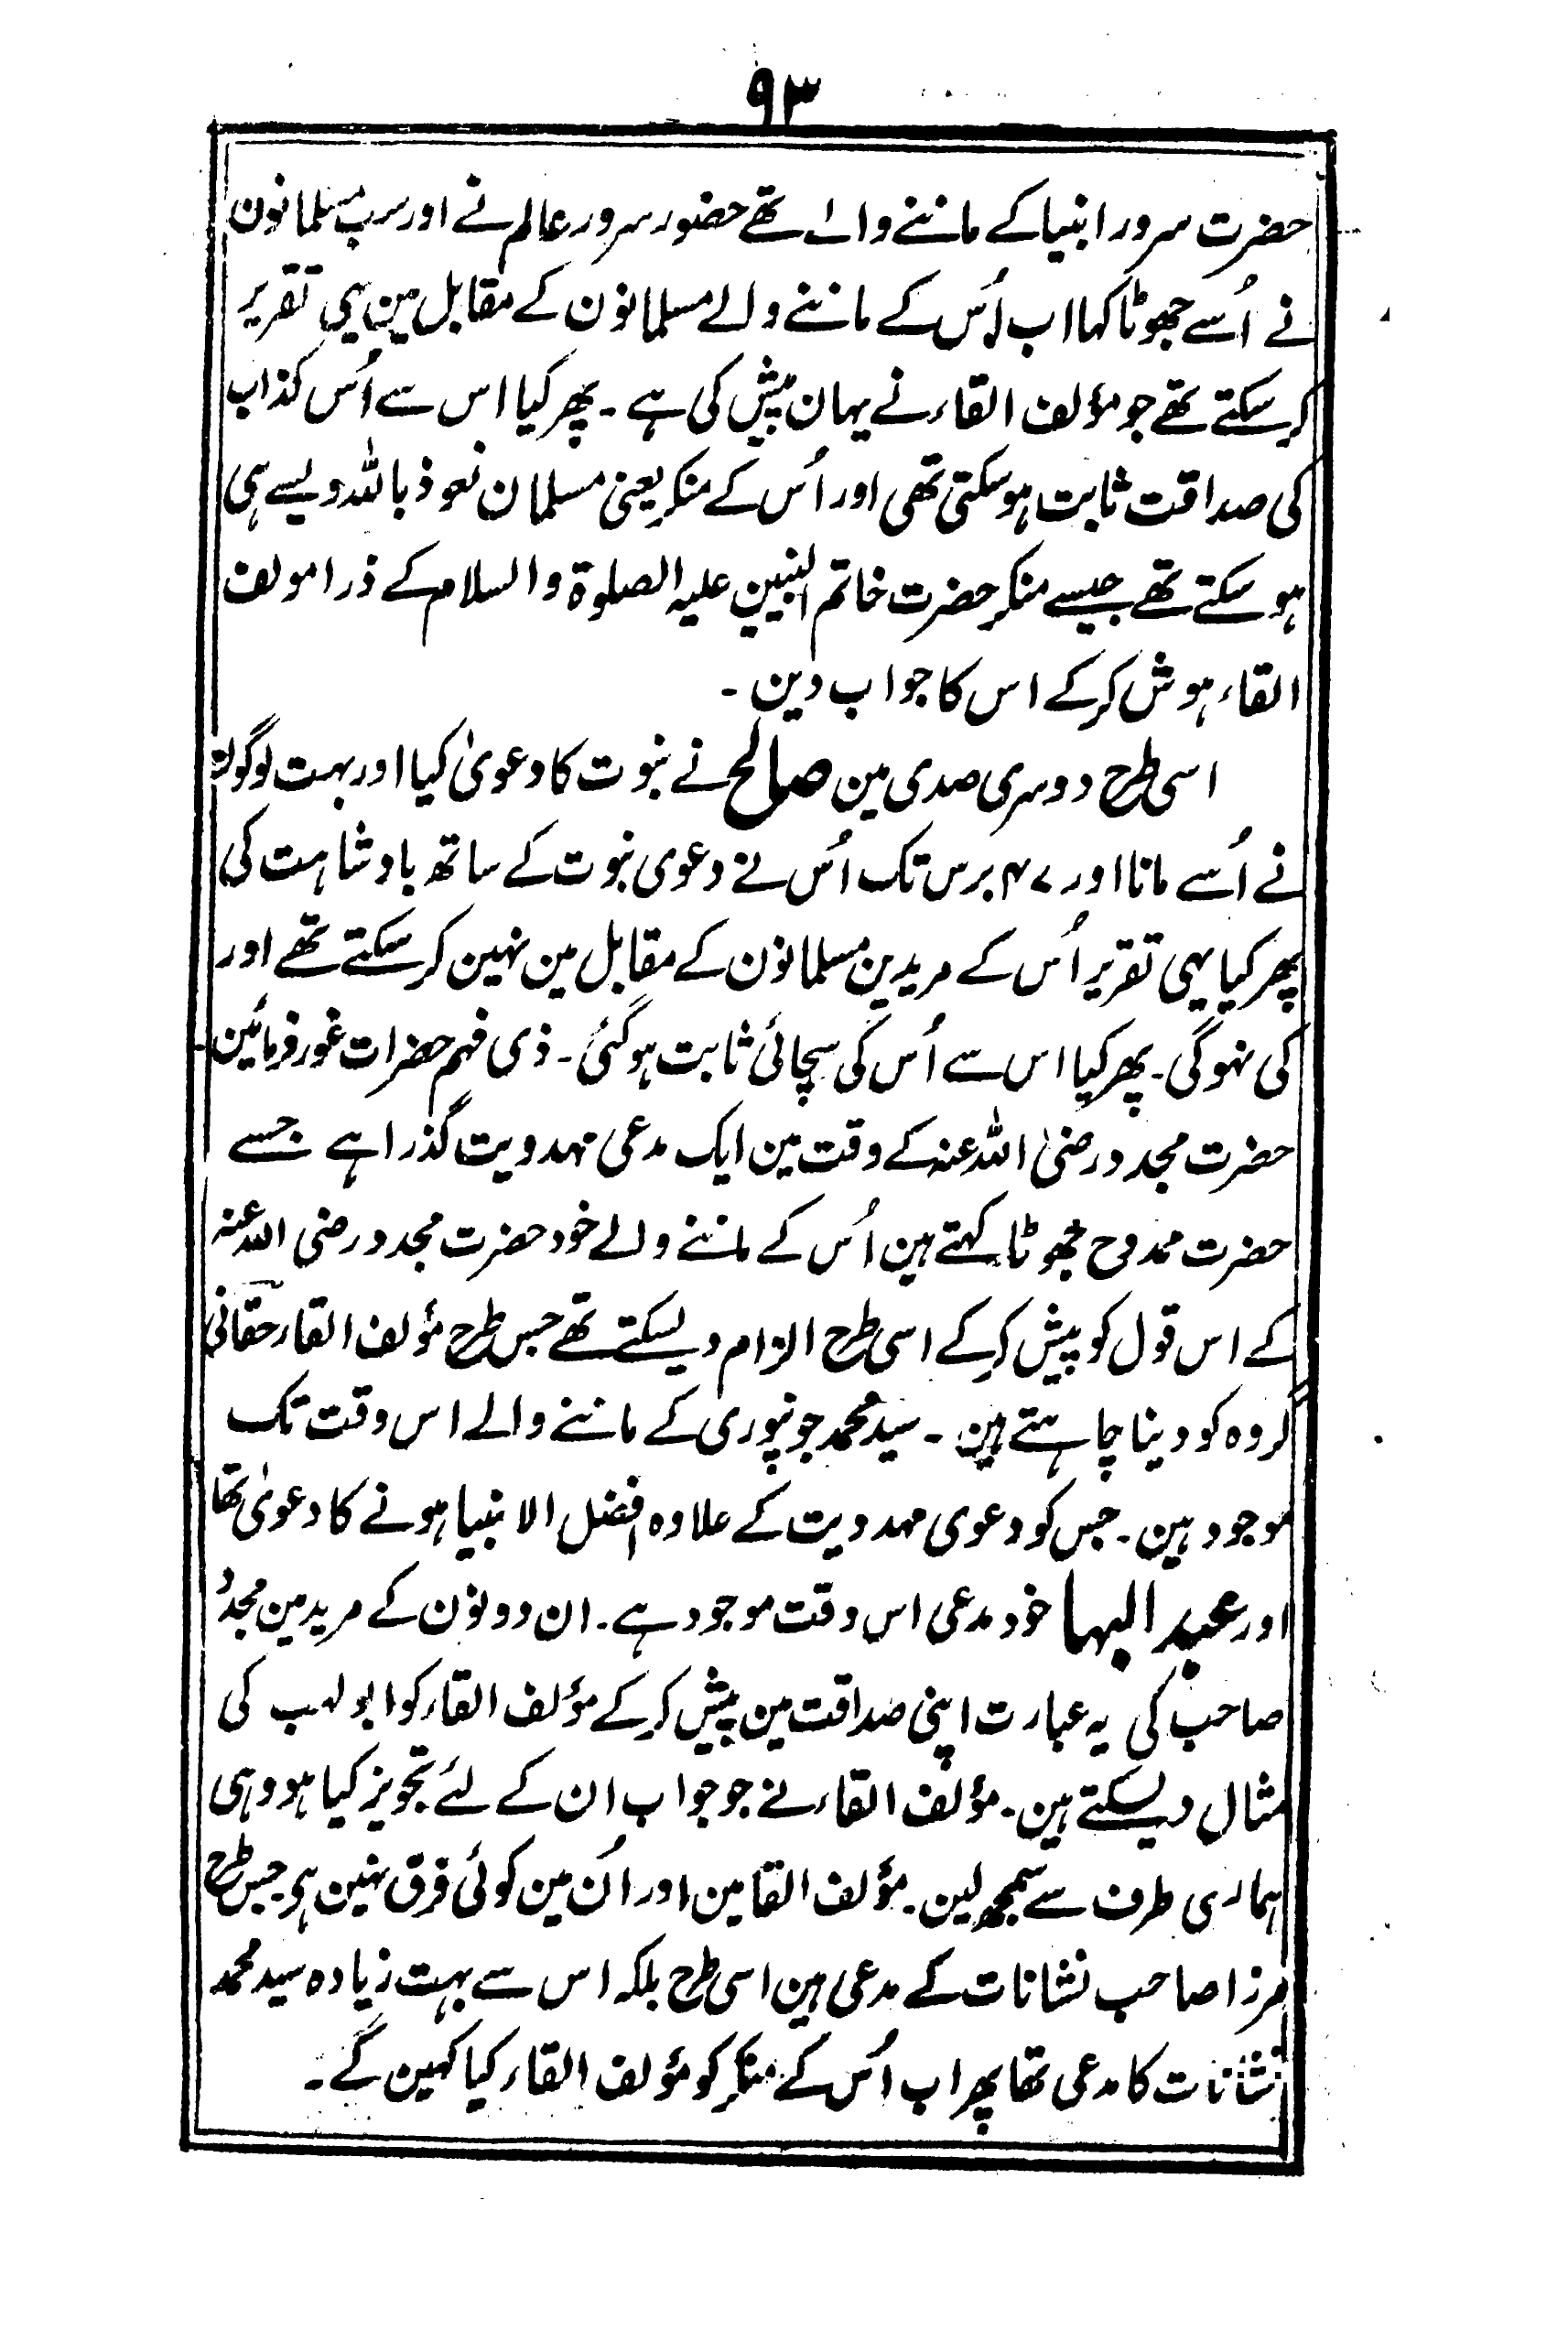 ۹۳
حضرت سرور انبیا کے ماننے والے تھے حضور سرور عالم نے اور سب مسلمانون
نے اُسے جھوٹا کہا اب اُس کے ماننے والے مسلمانون کے مقابل مین یہی تقریر
کر سکتے تھے جو مؤلف القاء نے یہان پیش کی ہے۔ پھر کیا اس سے اُس کذاب
کی صداقت ثابت ہوسکتی تھی اور اُس کے منکر یعنی مسلمان نعوذ باللہ ویسے ہی
ہو سکتے تھے جیسے منکر حضرت خاتم النبیین علیہ الصلوۃ والسلام کے ذرا مولف
القاء ہوش کرکے اس کا جواب دین۔
اسی طرح دوسری صدی مین صالح نے نبوت کا دعویٰ کیا اور بہت لوگون
نے اُسے مانا اور ۴۷ برس تک اُس نے دعوی نبوت کے ساتھ بادشاہت کی
پھر کیا یہی تقریر اُس کے مریدین مسلمانون کے مقابل مین نہین کر سکتے تھے اور
کی نہوگی۔ پھر کیا اس سے اُس کی سچائی ثابت ہوگئی۔ ذی فہم حضرات غور فرمائین۔
حضرت مجدد رضی اللہ عنہ کے وقت مین ایک مدعی مہدویت گذرا ہے جسے
حضرت ممدوح جھوٹا کہتے ہین اُس کے ماننے والے خود حضرت مجدد رضی اللہ عنہ
کے اس قول کو پیش کرکے اسی طرح الزام دیسکتے تھے جس طرح مؤلف القاء حقانی
گروہ کو دینا چاہتے ہین۔ سید محمد جونپوری کے ماننے والے اس وقت تک
موجود ہین۔ جس کو دعوی مہدویت کے علاوہ افضل الانبیا ہونے کا دعویٰ تھا
اور عبد البہا خود مدعی اس وقت موجود ہے۔ ان دونون کے مریدمین مجدد
صاحب کی یہ عبارت اپنی صداقت مین پیش کرکے مؤلف القاء کو ابو لہب کی
مثال دیسکتے ہین۔ مؤلف القاء نے جو جواب ان کے لئے تجویز کیا ہو وہی
ہماری طرف سے سمجھ لین۔ مؤلف القا مین اور اُن مین کوئی فرق نہین ہی جس طرح
مرزا صاحب نشانات کے مدعی ہین اسی طرح بلکہ اس سے بہت زیادہ سید محمد
نشانات کا مدعی تھا پھر اب اُس کے منکر کو مؤلف القاء کیا کہین گے۔